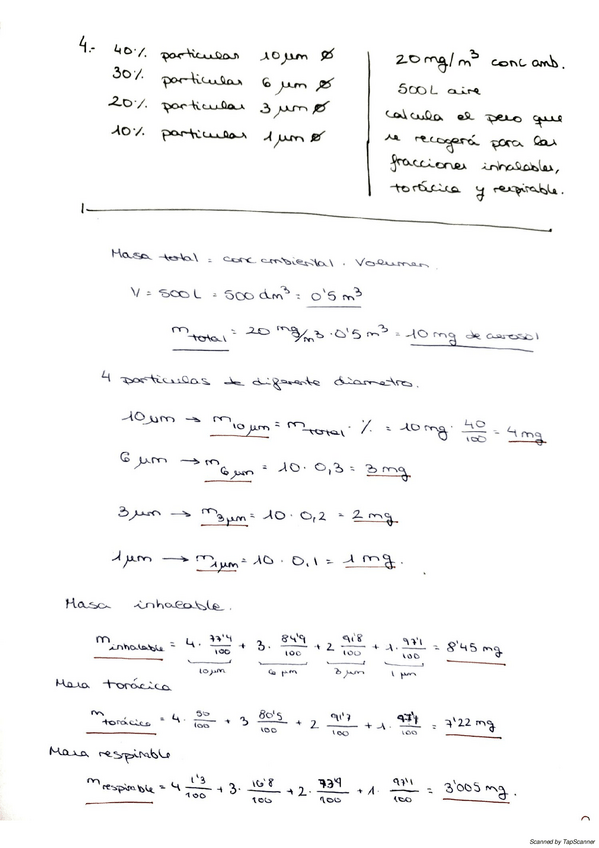 4.- 40% particulas 10 μm ø
30% particulas 6 μm ø
20% particulas 3 μm ø
10% particulas 1 μm ø
20 mg/m³ conc amb.
500 L aire
calcula el peso que
se recogerá para las
fracciones inhalables,
torácica y respirable.
Masa total = conc ambiental · Volumen.
V = 500 L = 500 dm³ = 0'5 m³
m total = 20 mg/m³ · 0'5 m³ = 10 mg de aerosol
4 particulas de diferente diametro.
10 μm → m 10 μm = m total · % = 10 mg · 40/100 = 4 mg
6 μm → m 6 μm = 10 · 0,3 = 3 mg
3 μm → m 3 μm = 10 · 0,2 = 2 mg
1 μm → m 1 μm = 10 · 0,1 = 1 mg.
Masa inhalable.
m inhalable = 4 · 77'4/100 + 3 · 84'9/100 + 2 91'8/100 + 1 · 97'1/100 = 8'45 mg
10 μm 6 μm 3 μm 1 μm
Masa torácica
m torácica = 4 · 50/100 + 3 80'5/100 + 2 91'7/100 + 1 · 97'1/100 = 7'22 mg
Masa respirable
m respirable = 4 1'3/100 + 3 · 16'8/100 + 2 · 73'9/100 + 1 · 97'1/100 = 3'005 mg.
Scanned by TapScanner